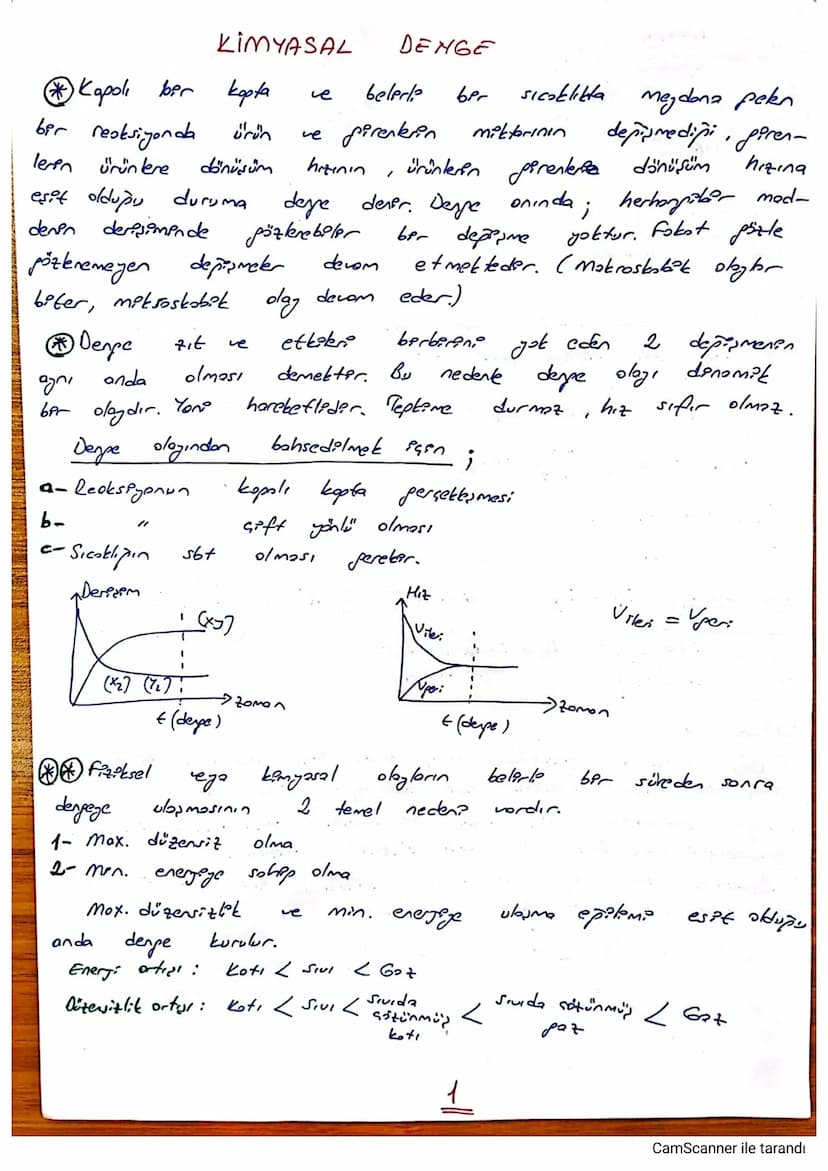 KİMYASAL DENGE
* Kapalı bir kapta ve belirli bir sıcaklıkta meydana gelen
bir reaksiyonda ürün ve girenlerin miktarının değişmediği, giren-
lerin ürünlere dönüşüm hızının, ürünlerin girenlere dönüşüm hızına
eşit olduğu duruma denge denir. Denge anında; herhangibir mad-
denin derişiminde gözlenebilir bir değişme yoktur. Fakat gözle
gözlenemeyen değişmeler devam etmektedir. (Makroskobik olaylar
biter, mikroskobik olay devam eder.)
* Denge zıt ve etkileri birbirini yok eden 2 değişmenin
aynı anda olması demektir. Bu nedenle denge olayı dinamik
bir olaydır. Yani hareketlidir. Tepkime durmaz, hız sıfır olmaz.
Denge olayından bahsedilmek için ;
a- Reaksiyonun kapalı kapta gerçekleşmesi
b- " çift yönlü olması
c- Sıcaklığın sbt olması gerekir.
Derişim
(XY)
(X2) (Y2)
Zaman
t (denge)
Hız
Vileri
Vgeri
Zaman
t (denge)
Vileri = Vgeri
** Fiziksel veya kimyasal olayların belirli bir süreden sonra
dengeye ulaşmasının 2 temel nedeni vardır.
1- Max. düzensiz olma
2- Min. enerjiye sahip olma
Max. düzensizlik ve min. enerjiye ulaşma eğilimi eşit olduğu
anda denge kurulur.
Enerji artışı : Katı < Sıvı < Gaz
Düzensizlik artışı : Katı < Sıvı < Sıvıda çözünmüş katı < Sıvıda çözünmüş gaz < Gaz
1
CamScanner ile tarandı